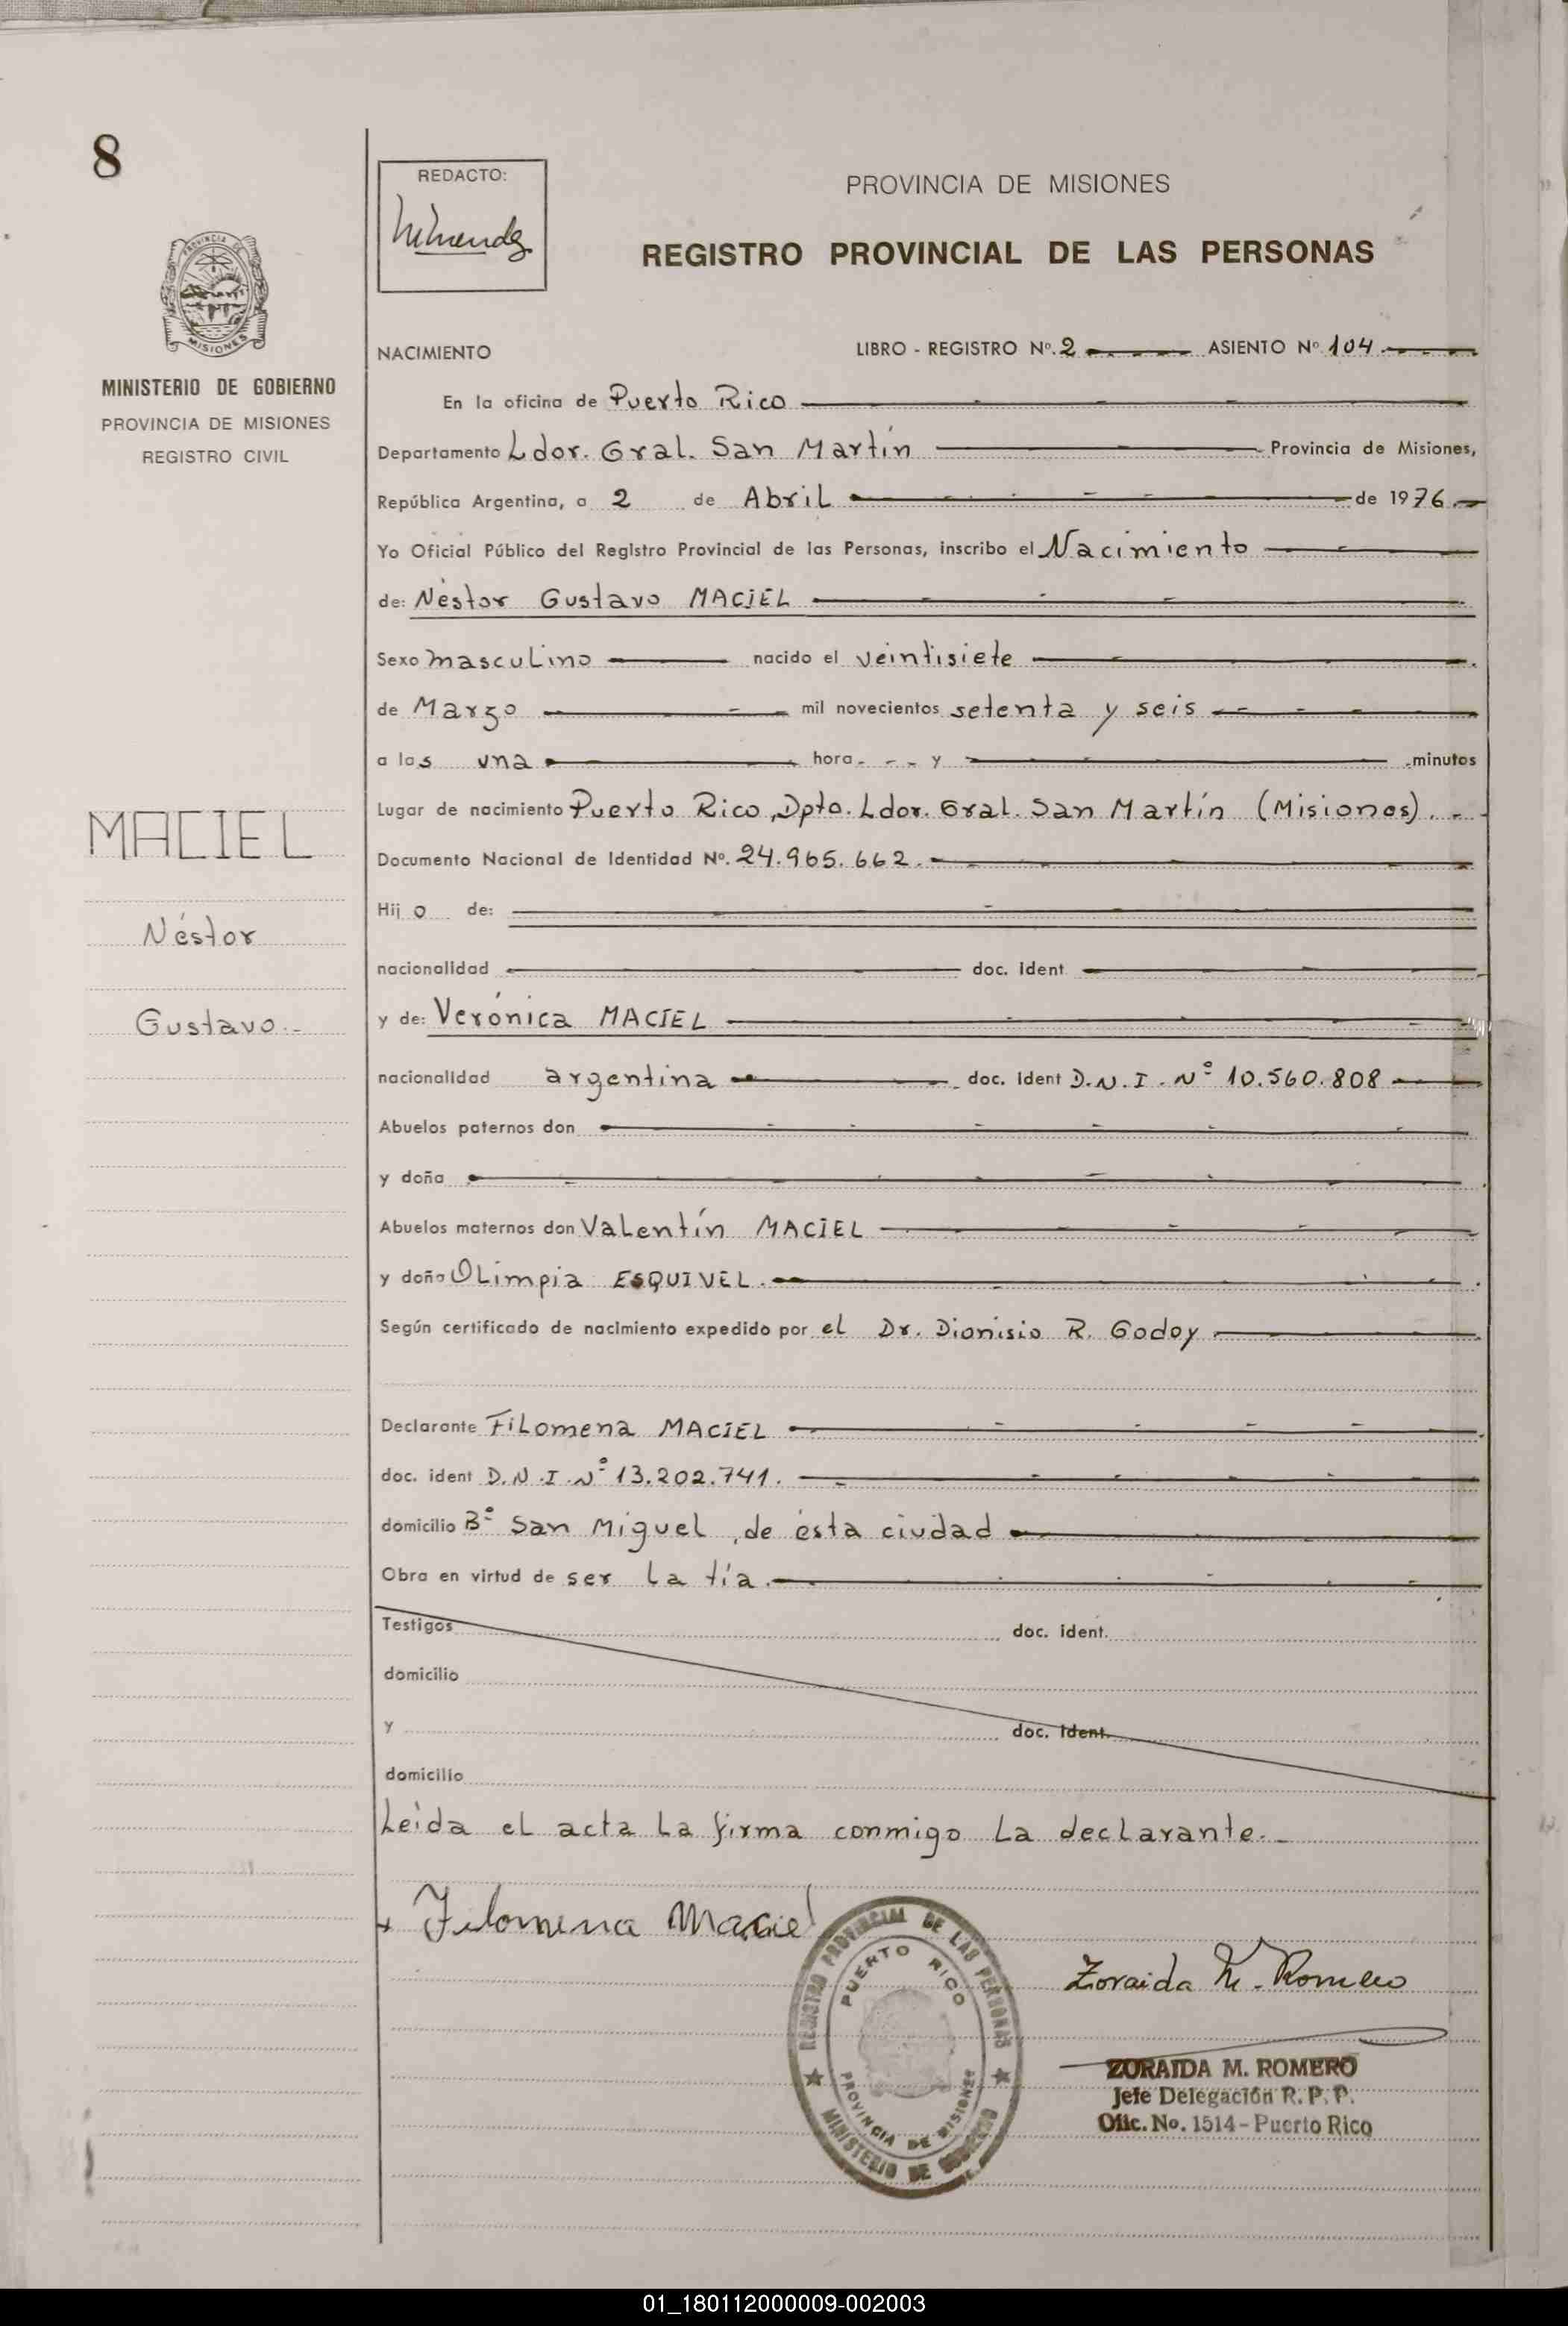 8
REDACTO:
PROVINCIA DE MISIONES
REGISTRO PROVINCIAL DE LAS PERSONAS
PROVINCIA DE
MISIONES
MINISTERIO DE GOBIERNO
PROVINCIA DE MISIONES
REGISTRO CIVIL
NACIMIENTO LIBRO - REGISTRO Nº. 2 ASIENTO Nº 104
En la oficina de Puerto Rico
Departamento Ldor. Gral. San Martín Provincia de Misiones,
República Argentina, a 2 de Abril de 1976
Yo Oficial Público del Registro Provincial de las Personas, inscribo el Nacimiento
de: Néstor Gustavo MACIEL
Sexo masculino nacido el veintisiete
de Marzo mil novecientos setenta y seis
a las una hora y minutos
Lugar de nacimiento Puerto Rico, Dpto. Ldor. Gral. San Martín (Misiones).
Documento Nacional de Identidad Nº. 24.965.662.
Hijo de:
nacionalidad doc. ident
y de: Verónica MACIEL
nacionalidad argentina doc. ident D.N.I. Nº 10.560.808
Abuelos paternos don
y doña
Abuelos maternos don Valentín MACIEL
y doña Olimpia ESQUIVEL.
Según certificado de nacimiento expedido por el Dr. Dionisio R. Godoy
Declarante Filomena MACIEL
doc. ident D.N.I. Nº 13.202.741.
domicilio Bº San Miguel, de ésta ciudad
Obra en virtud de ser la tía.
Testigos doc. ident.
domicilio
y doc. ident.
domicilio
Leída el acta la firma conmigo la declarante.
MACIEL
Néstor
Gustavo.-
Filomena Maciel
REGISTRO PROVINCIAL DE LAS PERSONAS
PUERTO RICO
PROVINCIA DE MISIONES
MINISTERIO DE GOBIERNO
Zoraida M. Romero
ZORAIDA M. ROMERO
Jefe Delegación R. P. P.
Ofic. No. 1514 - Puerto Rico
01_180112000009-002003